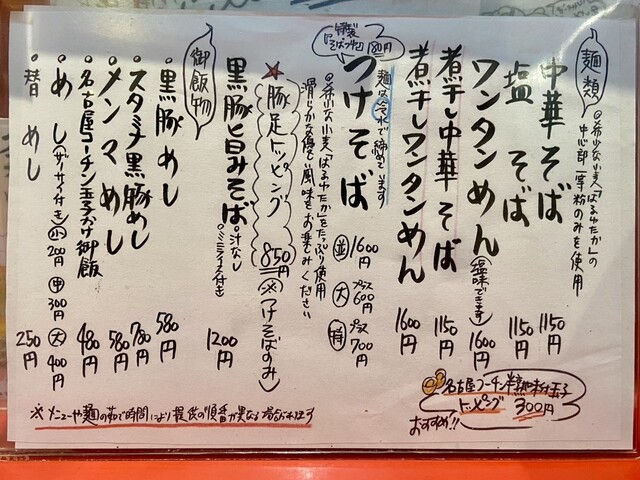 麺類
◎希少な小麦「はるゆたか」の
中心部一等粉のみを使用
中華そば 1150円
塩そば 1150円
ワンタンめん(塩味できます) 1600円
煮干し中華そば 1150円
煮干しワンタンめん 1600円
麺は冷水で締めています
特製「そばつゆ」180円
つけそば
並 1600円
大 プラス600円
特 プラス700円
◎希少な小麦「はるゆたか」をたっぷり使用
滑らかな優しい風味をお楽しみください
★豚足トッピング 850円(※つけそばのみ)
黒豚旨みそば ○汁なし ○ミニライス付き 1200円
御飯物
・黒豚めし 580円
・スタミナ黒豚めし 780円
・メンマめし 580円
・名古屋コーチン玉子かけ御飯 480円
・めし(ザーサイ付き) 小 200円 中 300円 大 400円
・替めし 250円
名古屋コーチン半熟味付玉子
トッピング 300円
おすすめ!!
※メニューや麺の茹で時間により提供の順番が異なる場合があります